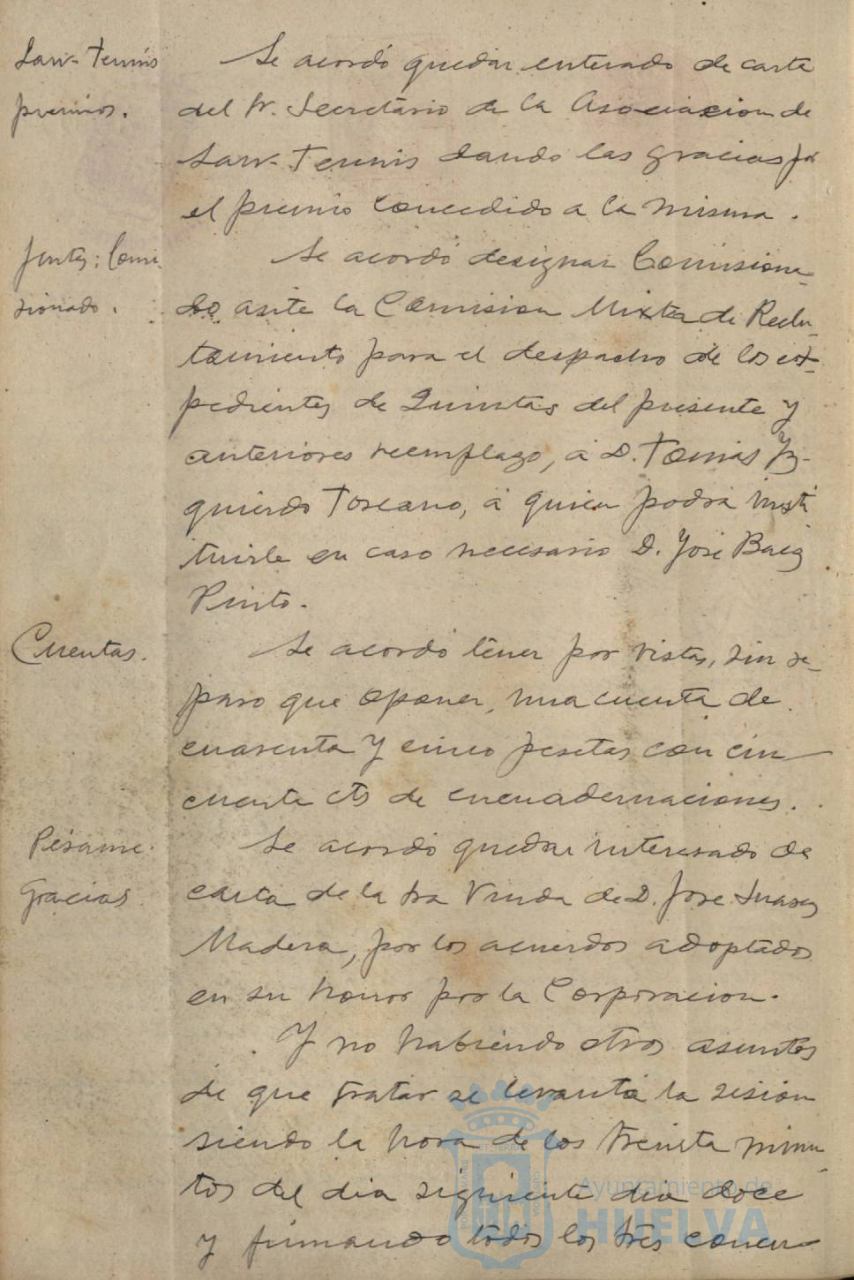 Law-Tennis
premios.
Se acordó quedar enterado de carta
del Sr. Secretario de la Asociacion de
Law-Tennis dando las gracias por
el premio concedido a la misma.
Juntas: Comi-
sionado.
Se acordó designar Comisiona-
do ante la Comision Mixta de Reclu-
tamiento para el despacho de los ex-
pedientes de Quintas del presente y
anteriores reemplazo, á D. Tomás Yz-
quierdo Toscano, á quien podrá susti
tuirle en caso necesario D. José Baez
Pinto.
Cuentas.
Se acordó tener por vistas, sin re-
paro que oponer, una cuenta de
cuarenta y cinco pesetas con cin-
cuenta cts de encuadernaciones.
Pésame.
Gracias
Se acordó quedar interesado de
carta de la Sra Viuda de D. José Suarez
Madera, por los acuerdos adoptados
en su honor por la Corporacion.
Y no habiendo otros asuntos
de que tratar se levantó la sesión
siendo la hora de los treinta minu-
tos del dia siguiente dia doce
y firmando todos los tres concu-
Ayuntamiento de
HUELVA